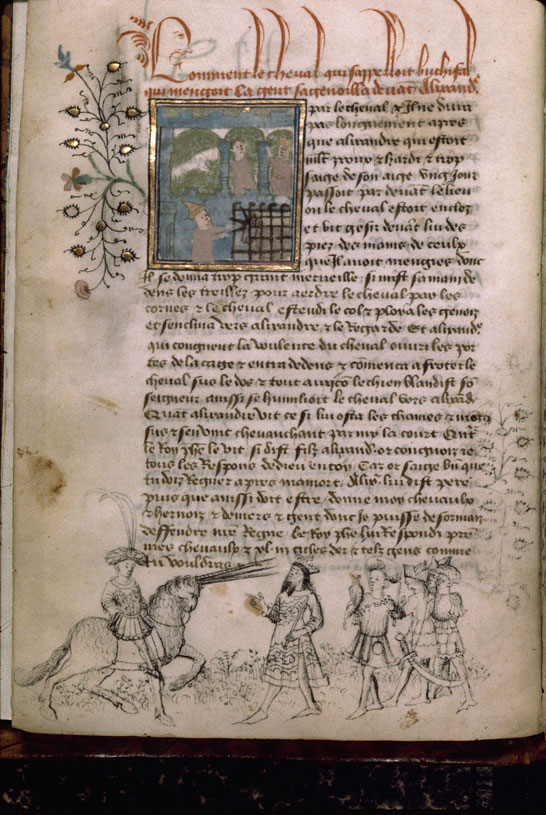 Comment le cheval qui sappelloit buchifal
qui mengoit la gent sagenoilla devāt Alixandᵉ
par le cheval & Il ne dura
pas longuement apres
que alixandre qui estoit
mlt proux & hardi & trop
saige de son aige Ung Jour
passoit par devāt le lieu
ou le cheval estoit enclos
et vit gesir devāt lui des
piez des mains de ceulx
que Il avoit mengies donc
Il se donna trop grant merveille si mist sa main de
dens les treilles pour aerdre le cheval par les
cornes & le cheval estendi le col & ploya les genoix
et senclina vers alixandre & le Regarde Et alixandᵉ
qui congneut la voulente du cheval ouvri les por
tes de la caige & entra dedens & comenca a froter le
cheval sus le dos & tout aussi cō le chien blandist sō
seigneur aussi se humilioit le cheval vers alixandᵉ
Quāt alixandre vit ce si lui osta les chaines & monta
sus & sen vint chevauchant parmy la court Quāt
le Roy phe le vit si dist filz alixandᵉ or congnois ie
tous les Respons de dieu en toy Car or saige bn̄ que
tu dois Regner apres ma mort Alixᵉ lui dist pere
puis que aussi doit estre donne moy chevaulx
& hernois & deniers & gent dont Je puisse desormais
deffendre nre Regne Le Roy phe lui Respondi pre
mes chevaulx & telz gens comme
tu vouldras